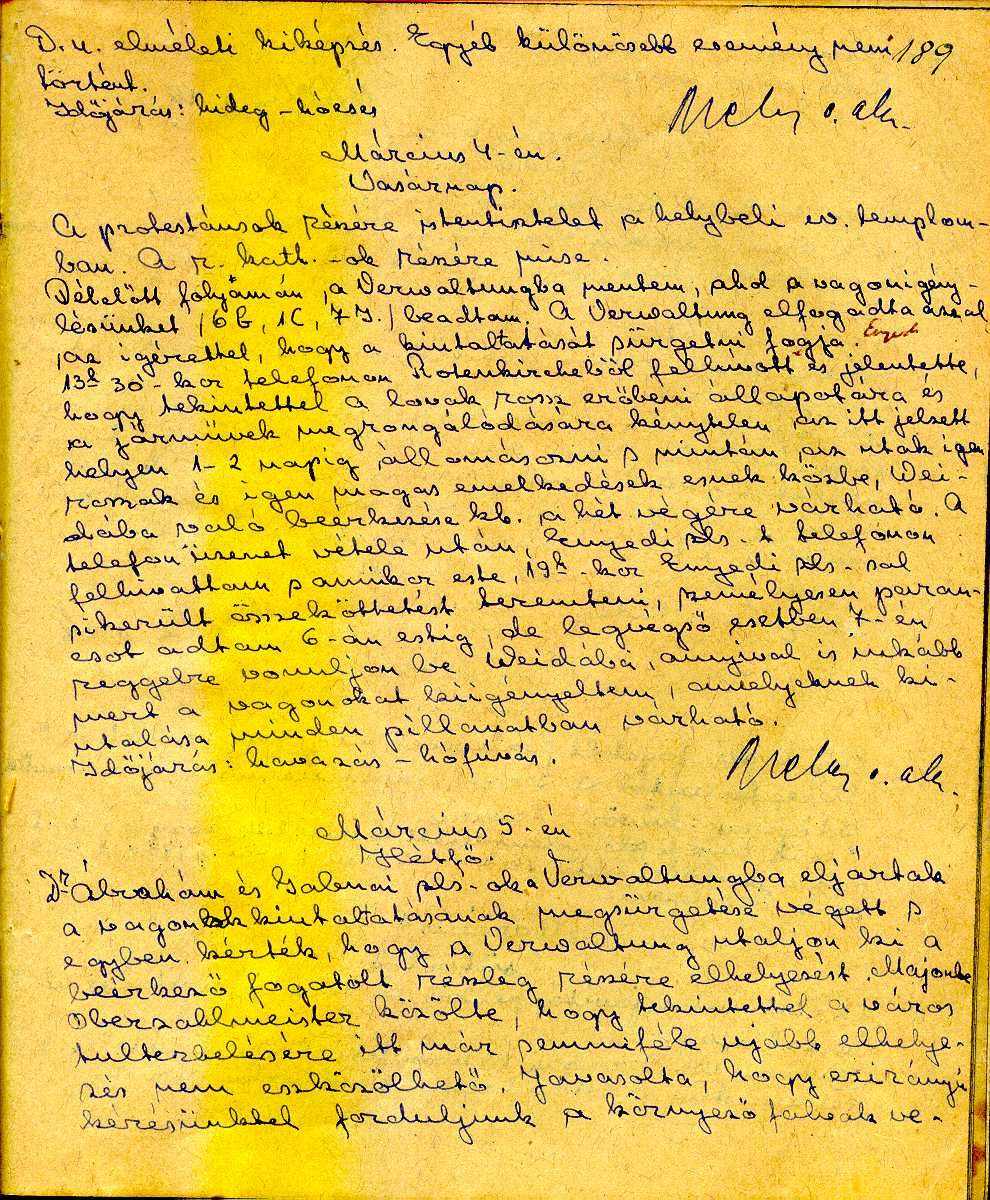 D. u. elméleti kiképzés. Egyéb különösebb esemény nem 189
történt.
Időjárás: hideg – hóesés
o. alez.
Március 4-én.
Vasárnap.
A protestánsok részére istentisztelet a helybeli ev. templom-
ban. A r. kath. -ok részére mise.
Délelőtt folyamán a Verwaltungba mentem, ahol a vagonigény-
lésünket /6 G, 1C, 7 J./ beadtam. A Verwaltung elfogadta azzal
az igérettel, hogy a kiutaltatását sürgetni fogja.
13h 30'-kor telefonon Rotenkircheből felhívott és jelentette,
hogy tekintettel a lovak rossz erőbeni állapotára és
a járművek megrongálódására kénytelen az itt jelzett
helyen 1-2 napig állomásozni s miután az utak igen
rosszak és igen magas emelkedések esnek közbe, Wei-
dába való beérkezése kb. a hét végére várható. A
telefon üzenet vétele után, Enyedi szls-t telefonon
felhivattam s amikor este, 19h-kor Enyedi szls-sal
sikerült összeköttetést teremteni, személyesen paran-
csot adtam 6-án estig, de legvégső esetben 7-én
reggelre vonuljon be Weidába, annyival is inkább
mert a vagonokat kiigényeltem, amelyeknek ki-
utalása minden pillanatban várható.
Időjárás: havazás – hófúvás.
o. alez.
Március 5-én
Hétfő.
Dr Ábrahám és Gabnai szls-ok a Verwaltungba eljártak
a vagonok kiutaltatásának megsürgetése végett s
egyben kérték, hogy a Verwaltung utaljon ki a
beérkező fogatolt részleg részére elhelyezést.
Oberzahlmeister közölte, hogy tekintettel a város
tulterhelésére itt már semmiféle ujabb elhelye-
zés nem eszközölhető. Javasolta, hogy ezirányú
kérésünkkel forduljunk a környező falvak ve-